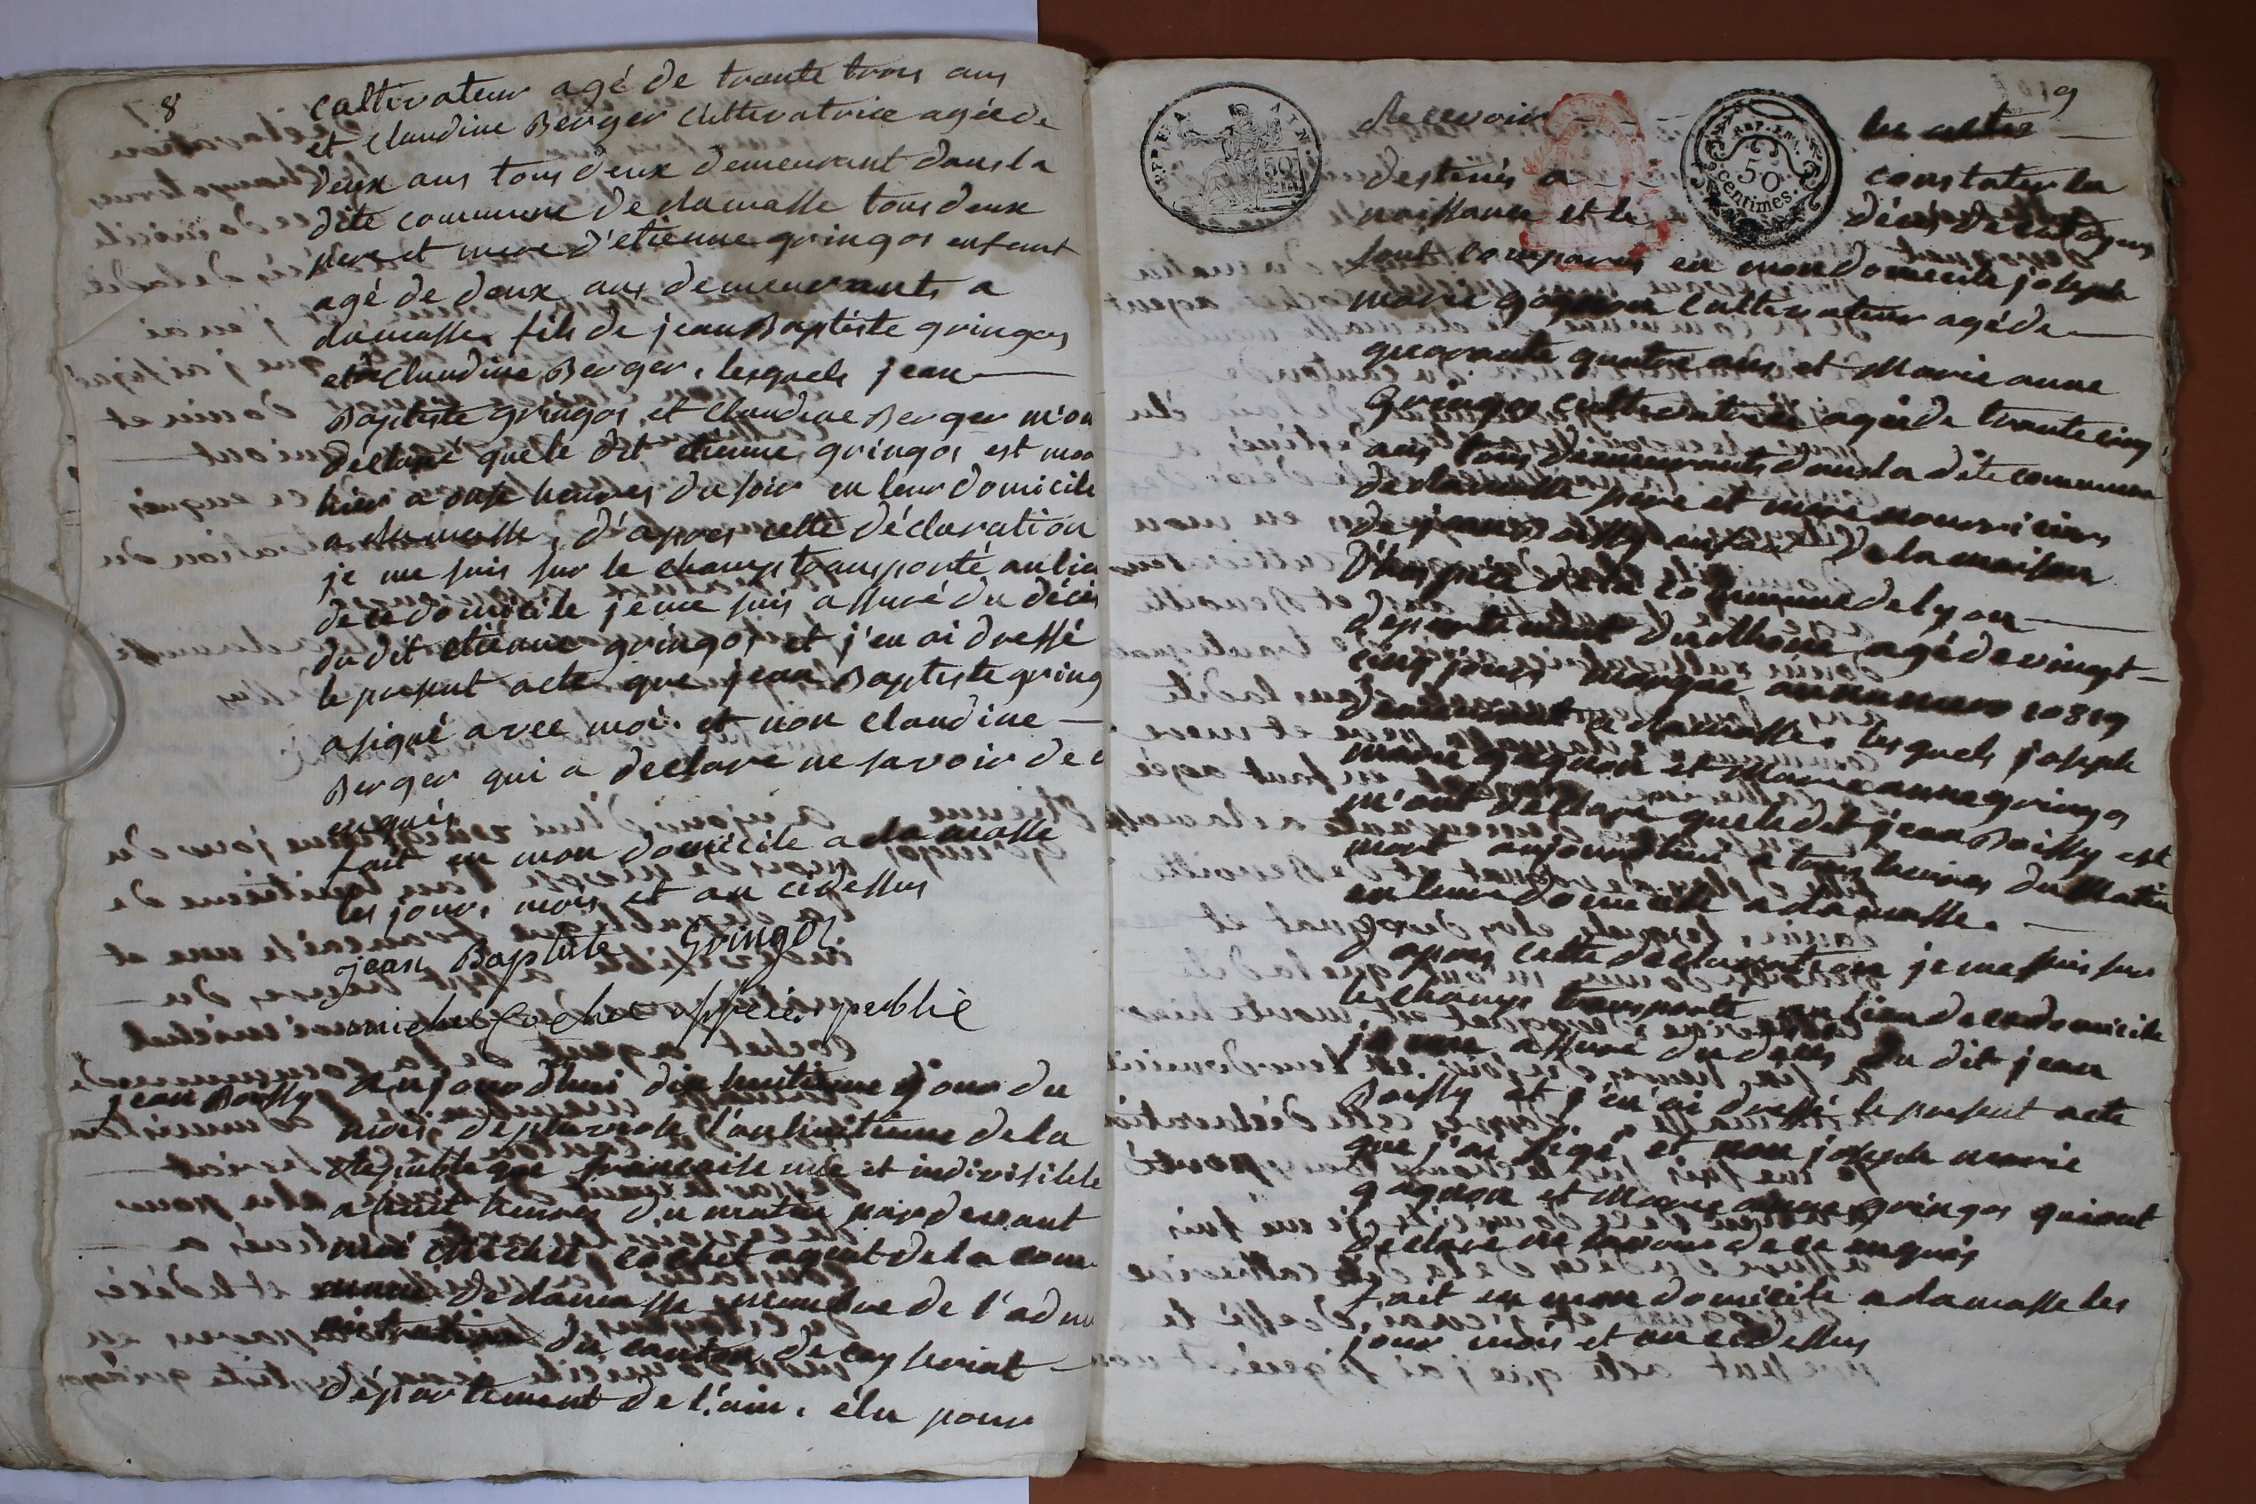 8
cultivateur agé de trante trois ans
et claudine Berger cultivatrice agée de
deux ans tous deux demeurant dans la
dite commune de damasse tous deux
pere et mere d'etienne gringos enfant
agé de deux ans demeurants a
damasse fils de jean Baptiste gringos
et claudine Berger, lesquels jean
Baptiste gringos et claudine Berger m'on
declaré que le dit etienne gringos est mor
hier a onze heures du soir en leur domicile
a damasse, d'apres cette déclaration
je me suis sur le champ transporté au lieu
de ce domicile je me suis assuré du décès
du dit etienne gringos et j'en ai dressé
le present acte que jean Baptiste gring
a signé avec moi, et non claudine
Berger qui a declare ne savoir de c
enquis
fait en mon domicile a damasse
les jour, mois et an cidessus
jean Baptiste Gringoz
michel Cochet officier public
jean Boissy
aujourd'hui dix huitieme jour du
mois de pluviose l'an huitieme de la
Republique francaise une et indivisible
a huit heures du matin pardevant
moi Michel cochet agent de la com
mune de damasse membre de l'admi
nistration du canton de ceyseriat
département de l'ain, élu pour
9
Recevoir les actes
destinés a constater la
naissance et le décès des citoyens
sont comparus en mon domicile joseph
marie gagnon cultivateur agé de
quarante quatre ans et Marie anne
Gringos cultivatrice agée de trante cinq
ans tous demeurants dans la dite commune
de damasse pere et mere nourriciers
de jean Boissy enfant de la maison
d'hospice de la commune de lyon
département du Rhone agé de vingt
cinq jours marque au numero 10819
demeurant a damasse, lesquels joseph
marie gagnon et Marie anne gringos
m'ont déclaré que le dit jean Boissy est
mort aujourd'hui a trois heures du Matin
en leur domicile a damasse.
apres cette déclaration je me suis sur
le champ transporté au lieu de ce domicile
je me assuré du décès du dit jean
Boissy et j'en ai dressé le present acte
que j'ai signé et non joseph marie
gagnon et Marie anne gringos qui ont
declare ne savoir de ce enquis
fait en mon domicile a damasse les
jour mois et an cidessus
REP. FRA.
50
centimes.